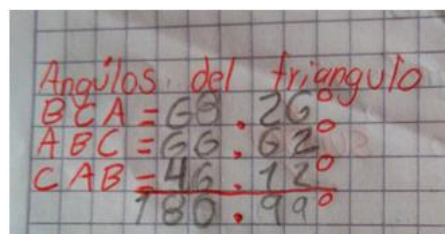 Angúlos del triangulo
BCA = 68.26°
ABC = 66.62°
CAB = 46.12°
180.99°